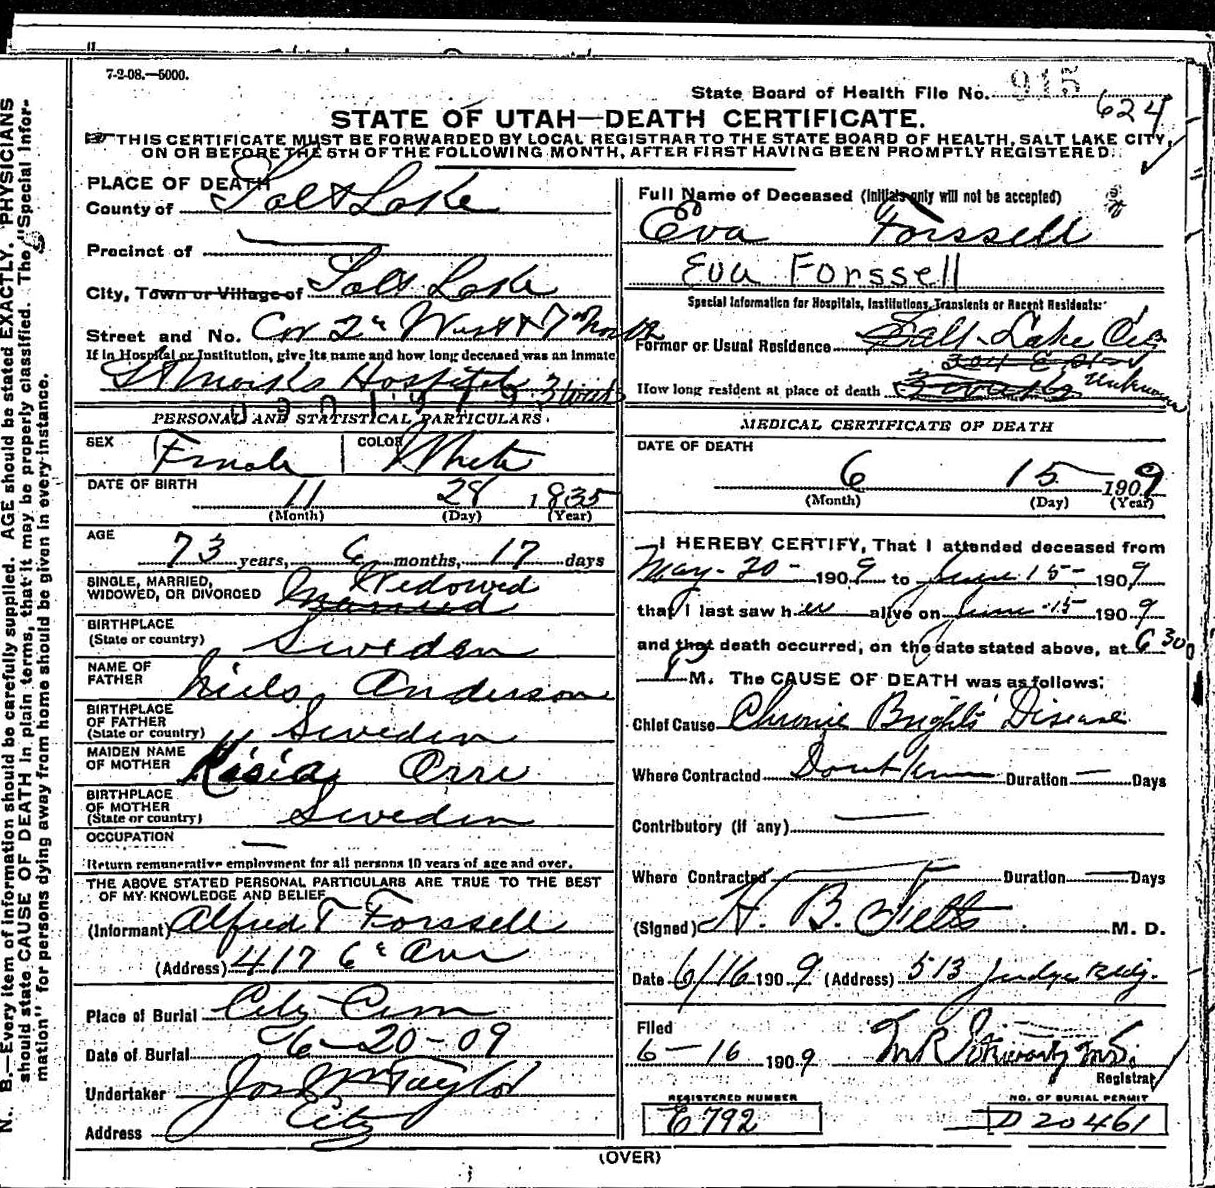 7-2-08.—5000.
State Board of Health File No. 915
624
STATE OF UTAH—DEATH CERTIFICATE.
THIS CERTIFICATE MUST BE FORWARDED BY LOCAL REGISTRAR TO THE STATE BOARD OF HEALTH, SALT LAKE CITY,
ON OR BEFORE THE 5TH OF THE FOLLOWING MONTH, AFTER FIRST HAVING BEEN PROMPTLY REGISTERED.
PLACE OF DEATH
County of Salt Lake
Precinct of
City, Town or Village of Salt Lake
Street and No. Cor 2d West & 7th North
If in Hospital or Institution, give its name and how long deceased was an inmate
St Marks Hospital 3 weeks
PERSONAL AND STATISTICAL PARTICULARS
SEX Female COLOR White
DATE OF BIRTH 11 28 1835
(Month) (Day) (Year)
AGE 73 years, 6 months, 17 days
SINGLE, MARRIED, WIDOWED, OR DIVORCED Widowed
Married
BIRTHPLACE (State or country) Sweden
NAME OF FATHER Niels Anderson
BIRTHPLACE OF FATHER (State or country) Sweden
MAIDEN NAME OF MOTHER
BIRTHPLACE OF MOTHER (State or country) Sweden
OCCUPATION —
Return remunerative employment for all persons 10 years of age and over.
THE ABOVE STATED PERSONAL PARTICULARS ARE TRUE TO THE BEST
OF MY KNOWLEDGE AND BELIEF
(Informant) Alfred T Forssell
(Address) 417 6th Ave
Place of Burial City Cem
Date of Burial 6-20-09
Undertaker Jos Wm Taylor
Address City
Full Name of Deceased (Initials only will not be accepted)
Eva Forssell
Eva Forssell
Special Information for Hospitals, Institutions, Transients or Recent Residents:
Former or Usual Residence Salt Lake City
How long resident at place of death 3 weeks Unknown
MEDICAL CERTIFICATE OF DEATH
DATE OF DEATH
6 15 1909
(Month) (Day) (Year)
I HEREBY CERTIFY, That I attended deceased from
May-20- 1909 to June 15- 1909
that I last saw her alive on June 15 1909
and that death occurred, on the date stated above, at 6 30
P M. The CAUSE OF DEATH was as follows:
Chief Cause Chronic Brights Disease
Where Contracted Dont know Duration — Days
Contributory (if any) —
Where Contracted — Duration — Days
(Signed) H. B. Felts M. D.
Date 6/16 1909 (Address) 513 Judge Bldg.
Filed
6-16 1909
Registrar
REGISTERED NUMBER
E792
NO. OF BURIAL PERMIT
D20461
(OVER)
N. B.—Every item of information should be carefully supplied. AGE should be stated EXACTLY. PHYSICIANS
should state CAUSE OF DEATH in plain terms, that it may be properly classified. The "Special Infor-
mation" for persons dying away from home should be given in every instance.